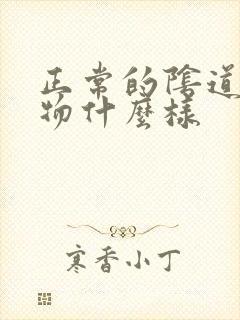 正常的陰道
物什麼樣
寒香小丁